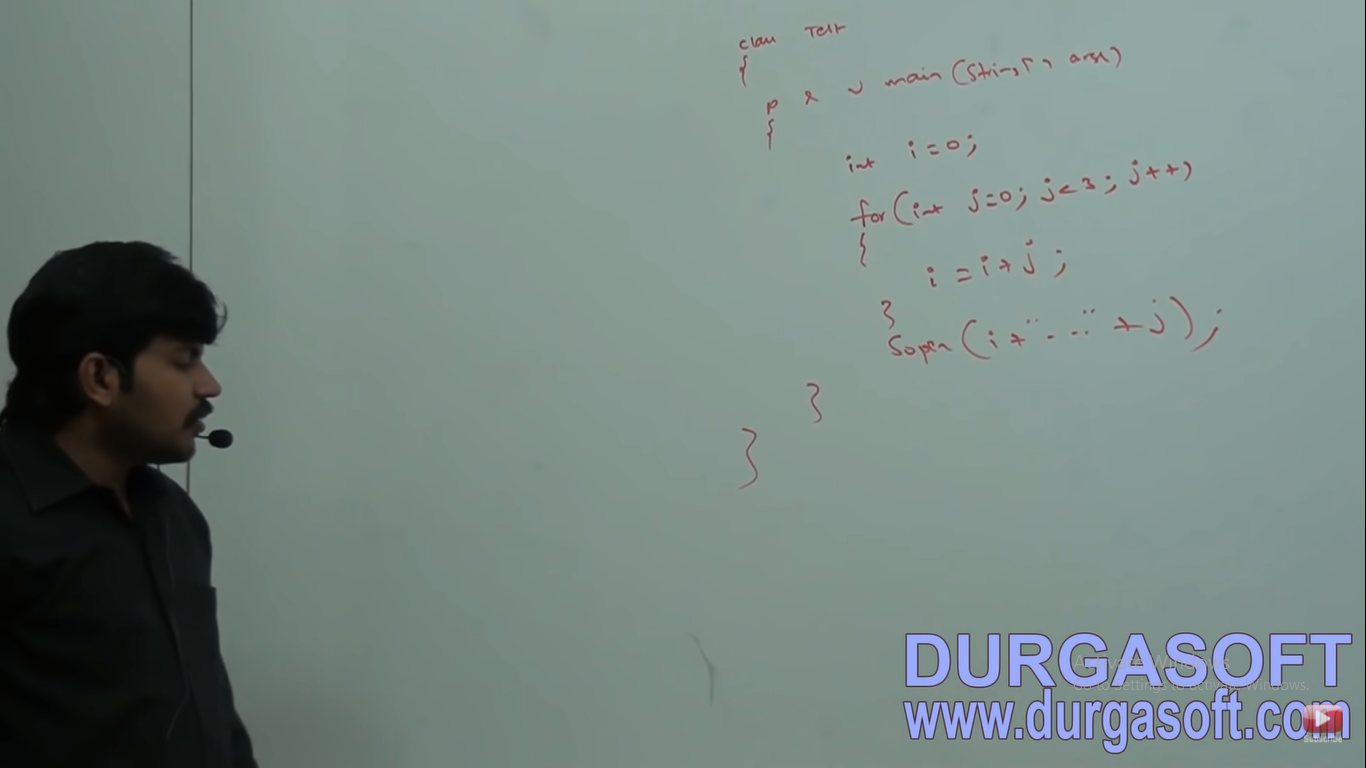 class Test
{
p s v main(String[] args)
{
int i=0;
for(int j=0; j<3; j++)
{
i = i+j;
}
Sopln(i+"--"+j);
}
}
DURGASOFT
www.durgasoft.com
Activate Windows
Go to Settings to activate Windows.
SUBSCRIBE